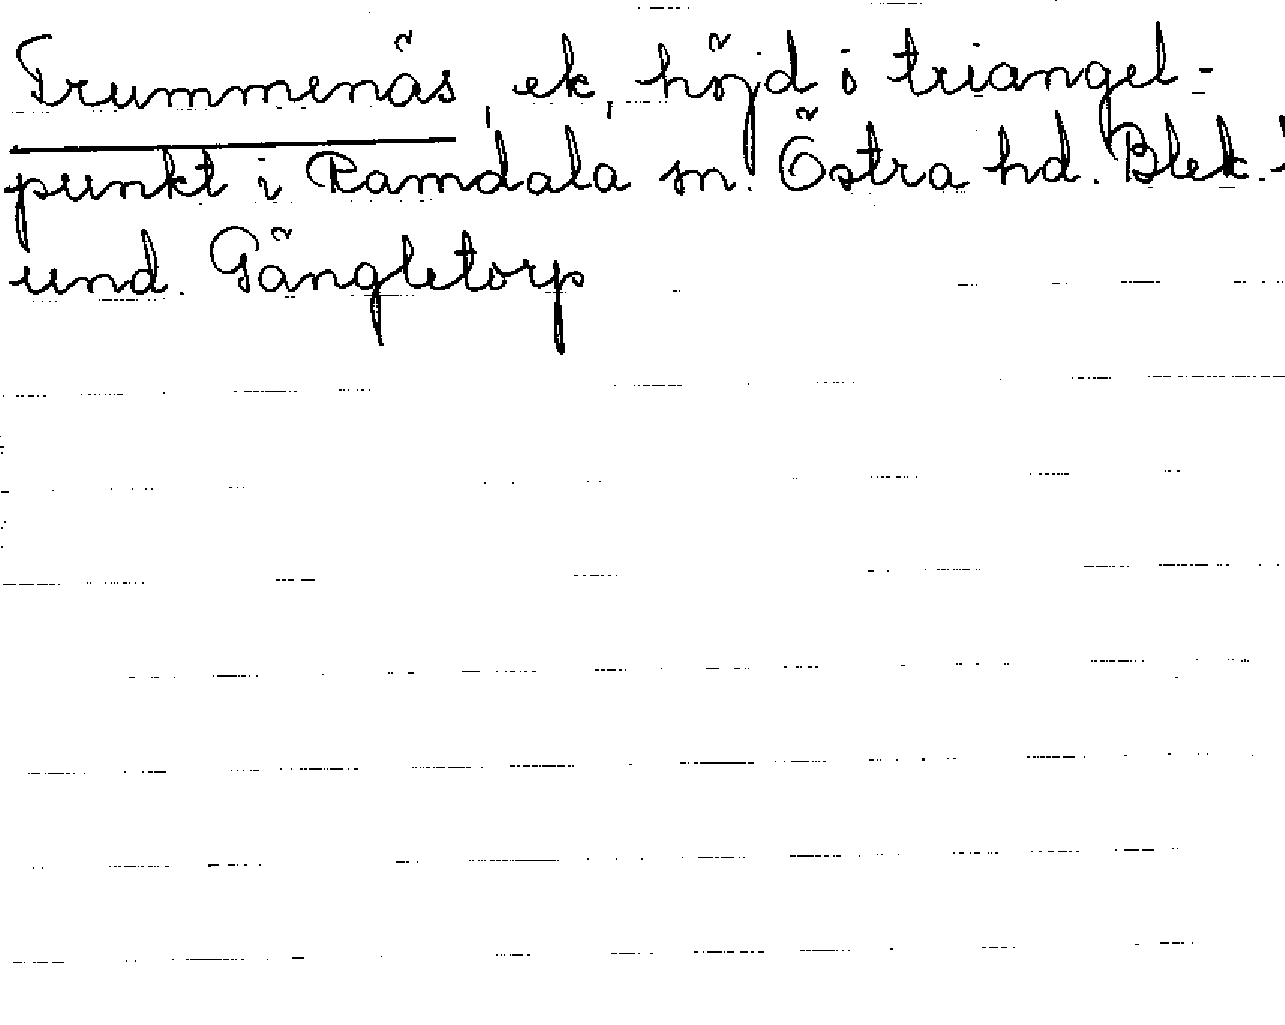 Trummenäs, ek, höjd i triangel-
punkt i Ramdala sn. Östra hd. Blek.
und. Gängletorp